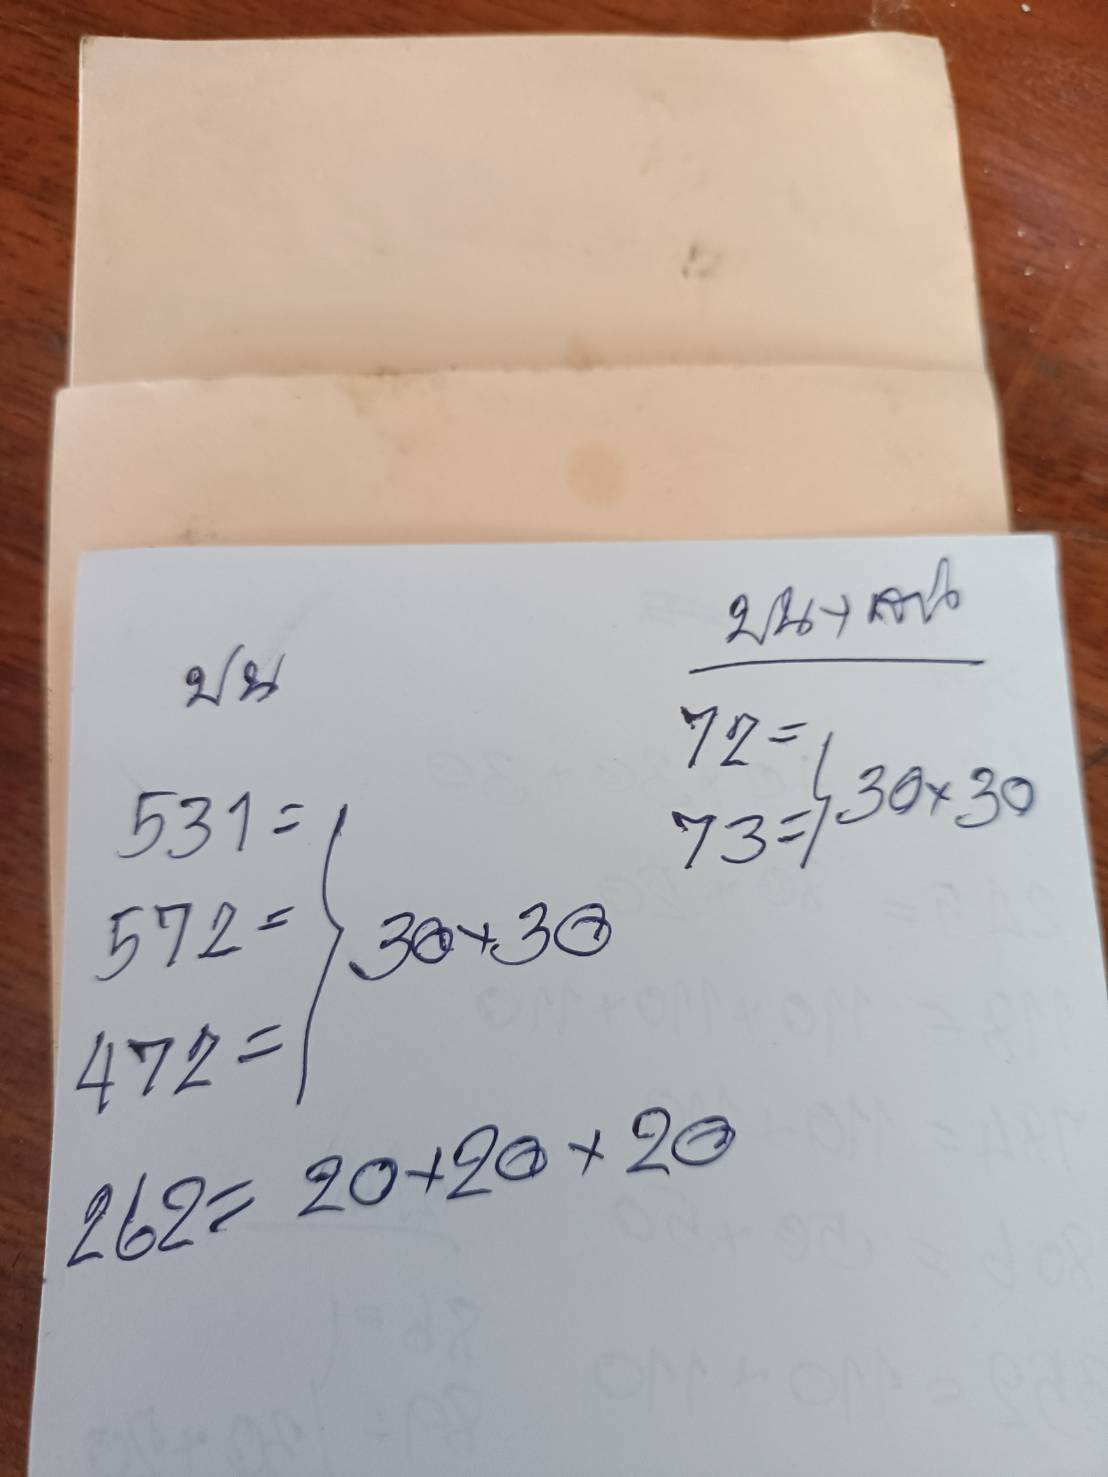 บน
531=
572= 30×30
472=
262= 20×20×20
บน+ล่าง
72= 30×30
73=